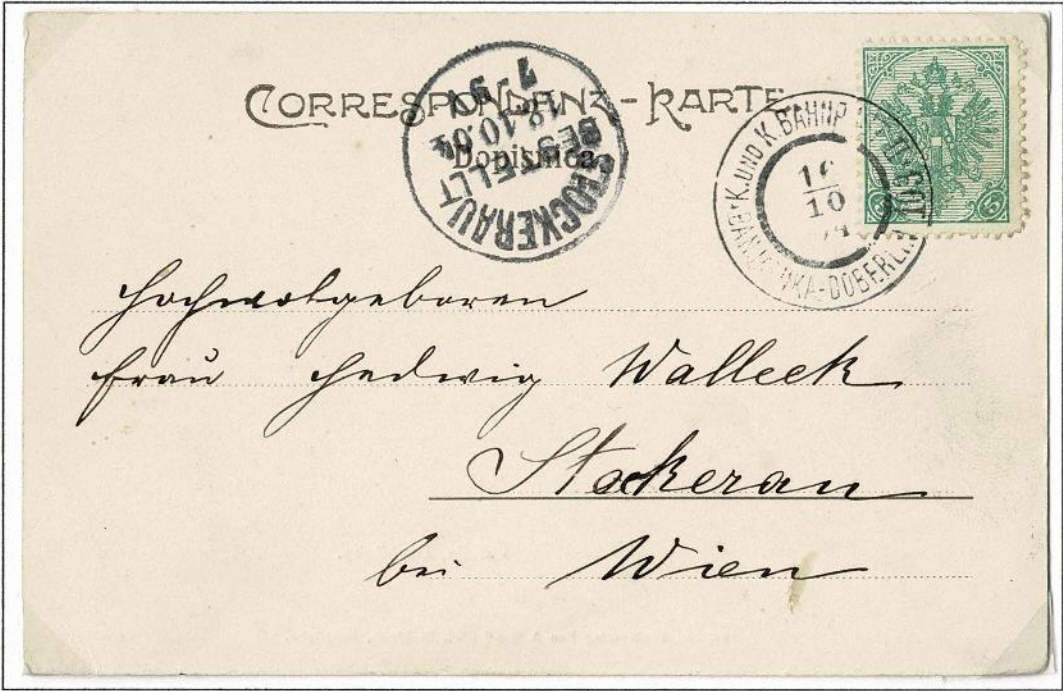 CORRESPONDANZ-KARTE
Dopisnica
STOCKERAU
BESTELLT
18.10.04
7-9V
K. UND K. BAHNP
BANJALUKA-DOBERLIN
16
10
5
Hochwolgeboren
Frau Hedwig Walleck
Stockerau
bei Wien